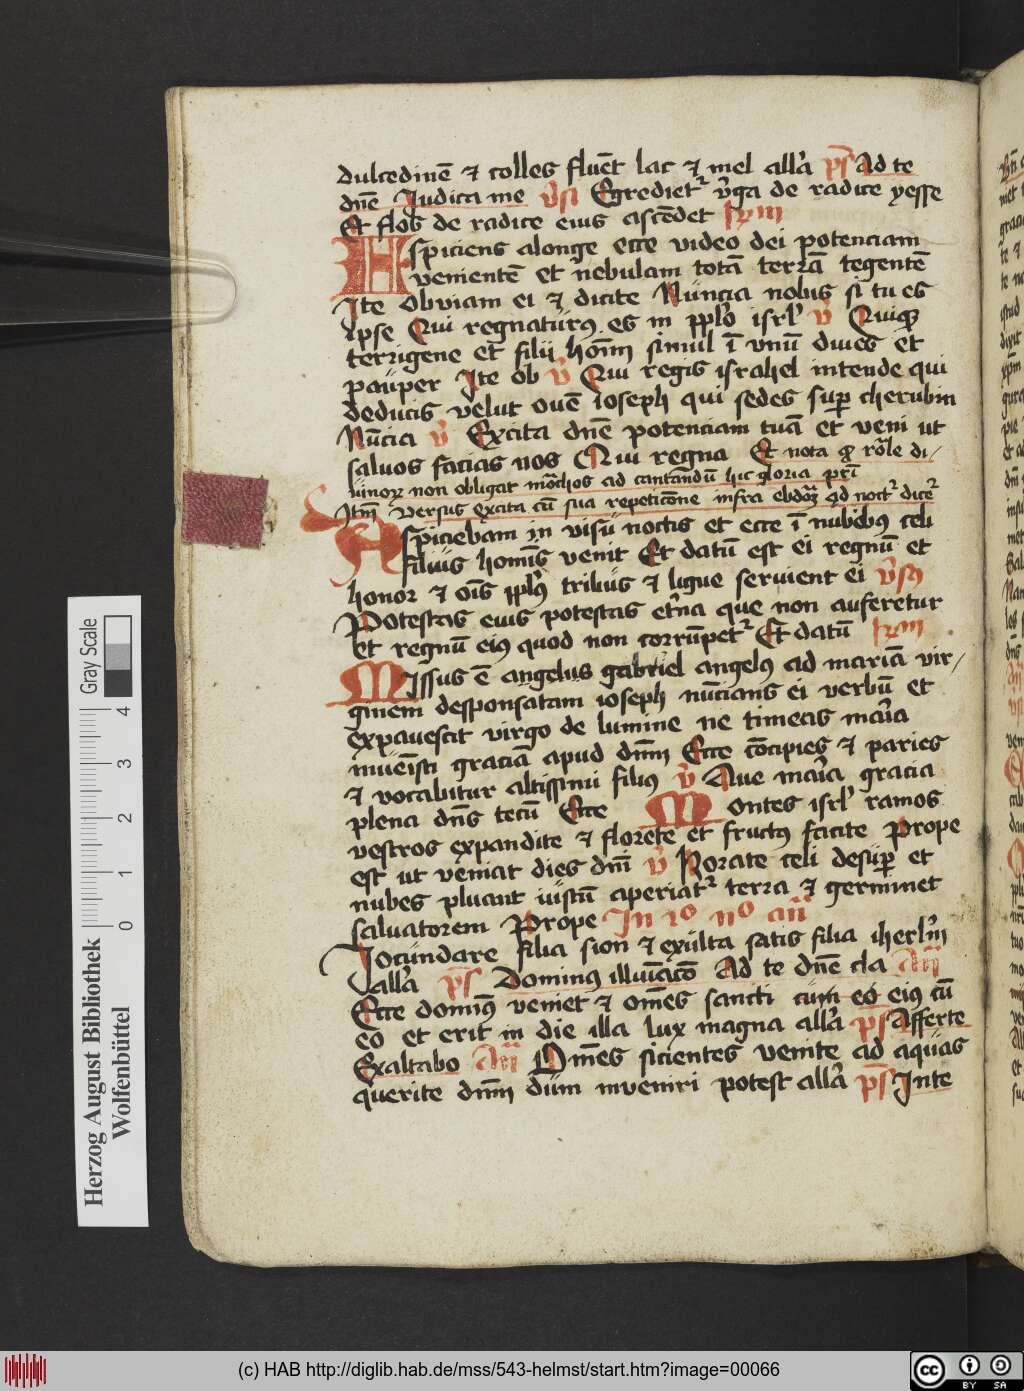 dulcedinē ⁊ colles fluēt lac ⁊ mel allā ps̄ Ad te
dn̄e Iudica me v̄s Egrediet᷑ v̄ga de radice yesse
Et flos de radice eius ascēdet
Aspiciens alonge ecce video dei potenciam
venientē et nebulam totā terrā tegentē
Ite obviam ei ⁊ dicite Nuncia nobis si tu es
ipse Qui regnaturus es in pplo isrl v̄ Quiqꝫ
terrigene et filii hoīm simul ī vnū diues et
pauper Ite ob v̄ Qui regis israhel intende qui
deducis velut ouē ioseph qui sedes suꝑ cherubin
Nūcia v̄ Excita dn̄e potenciam tuā et veni ut
saluos facias nos Qui regna Et nota ꝙ rōle di-
uinoꝝ non obligat monachos ad cantandū hic gloria pri
Itm̄ versus excita cū sua repeticōne infra ebdoꝫ ad noct᷑ dic᷑
Aspiciebam in visu noctis et ecce ī nubibus celi
filius hominis venit Et datū est ei regnū et
honor ⁊ oīs ppls tribus ⁊ ligue seruient ei v̄sus
Potestas eius potestas etn̄a que non auferetur
et regnū eius quod non corrūpet᷑ Et datū
Missus ē angelus gabriel angelus ad mariā vir-
ginem desponsatam ioseph nūcians ei verbū et
expauescit virgo de lumine ne timeas mar̄ia
inueīsti graciā apud dn̄m Ecce cōcipies ⁊ paries
⁊ vocabitur altissimi filius v̄ Aue mar̄ia gracia
plena dn̄s tecū Ecce Montes isrl ramos
vestros expandite ⁊ florete et fructus facite Prope
est ut veniat dies dn̄i v̄ Rorate celi desuꝑ et
nubes pluant iustū aperiat᷑ terra ⁊ germinet
saluatorem Prope In io no an̄
Iocundare filia sion ⁊ exulta satis filia iherlm̄
allā ps̄ Dominus illuiacō Ad te dn̄e cla An̄
Ecce dominus veniet ⁊ om̄es sancti cum eo eius cū
eo et erit in die illa lux magna allā ps̄ Afferte
Exaltabo An̄ Om̄es sicientes venite ad aquas
querite dn̄m dum inueniri potest allā ps̄ In te
Gray Scale
4
3
2
1
0
Herzog August Bibliothek
Wolfenbüttel
(c) HAB http://diglib.hab.de/mss/543-helmst/start.htm?image=00066
cc BY SA